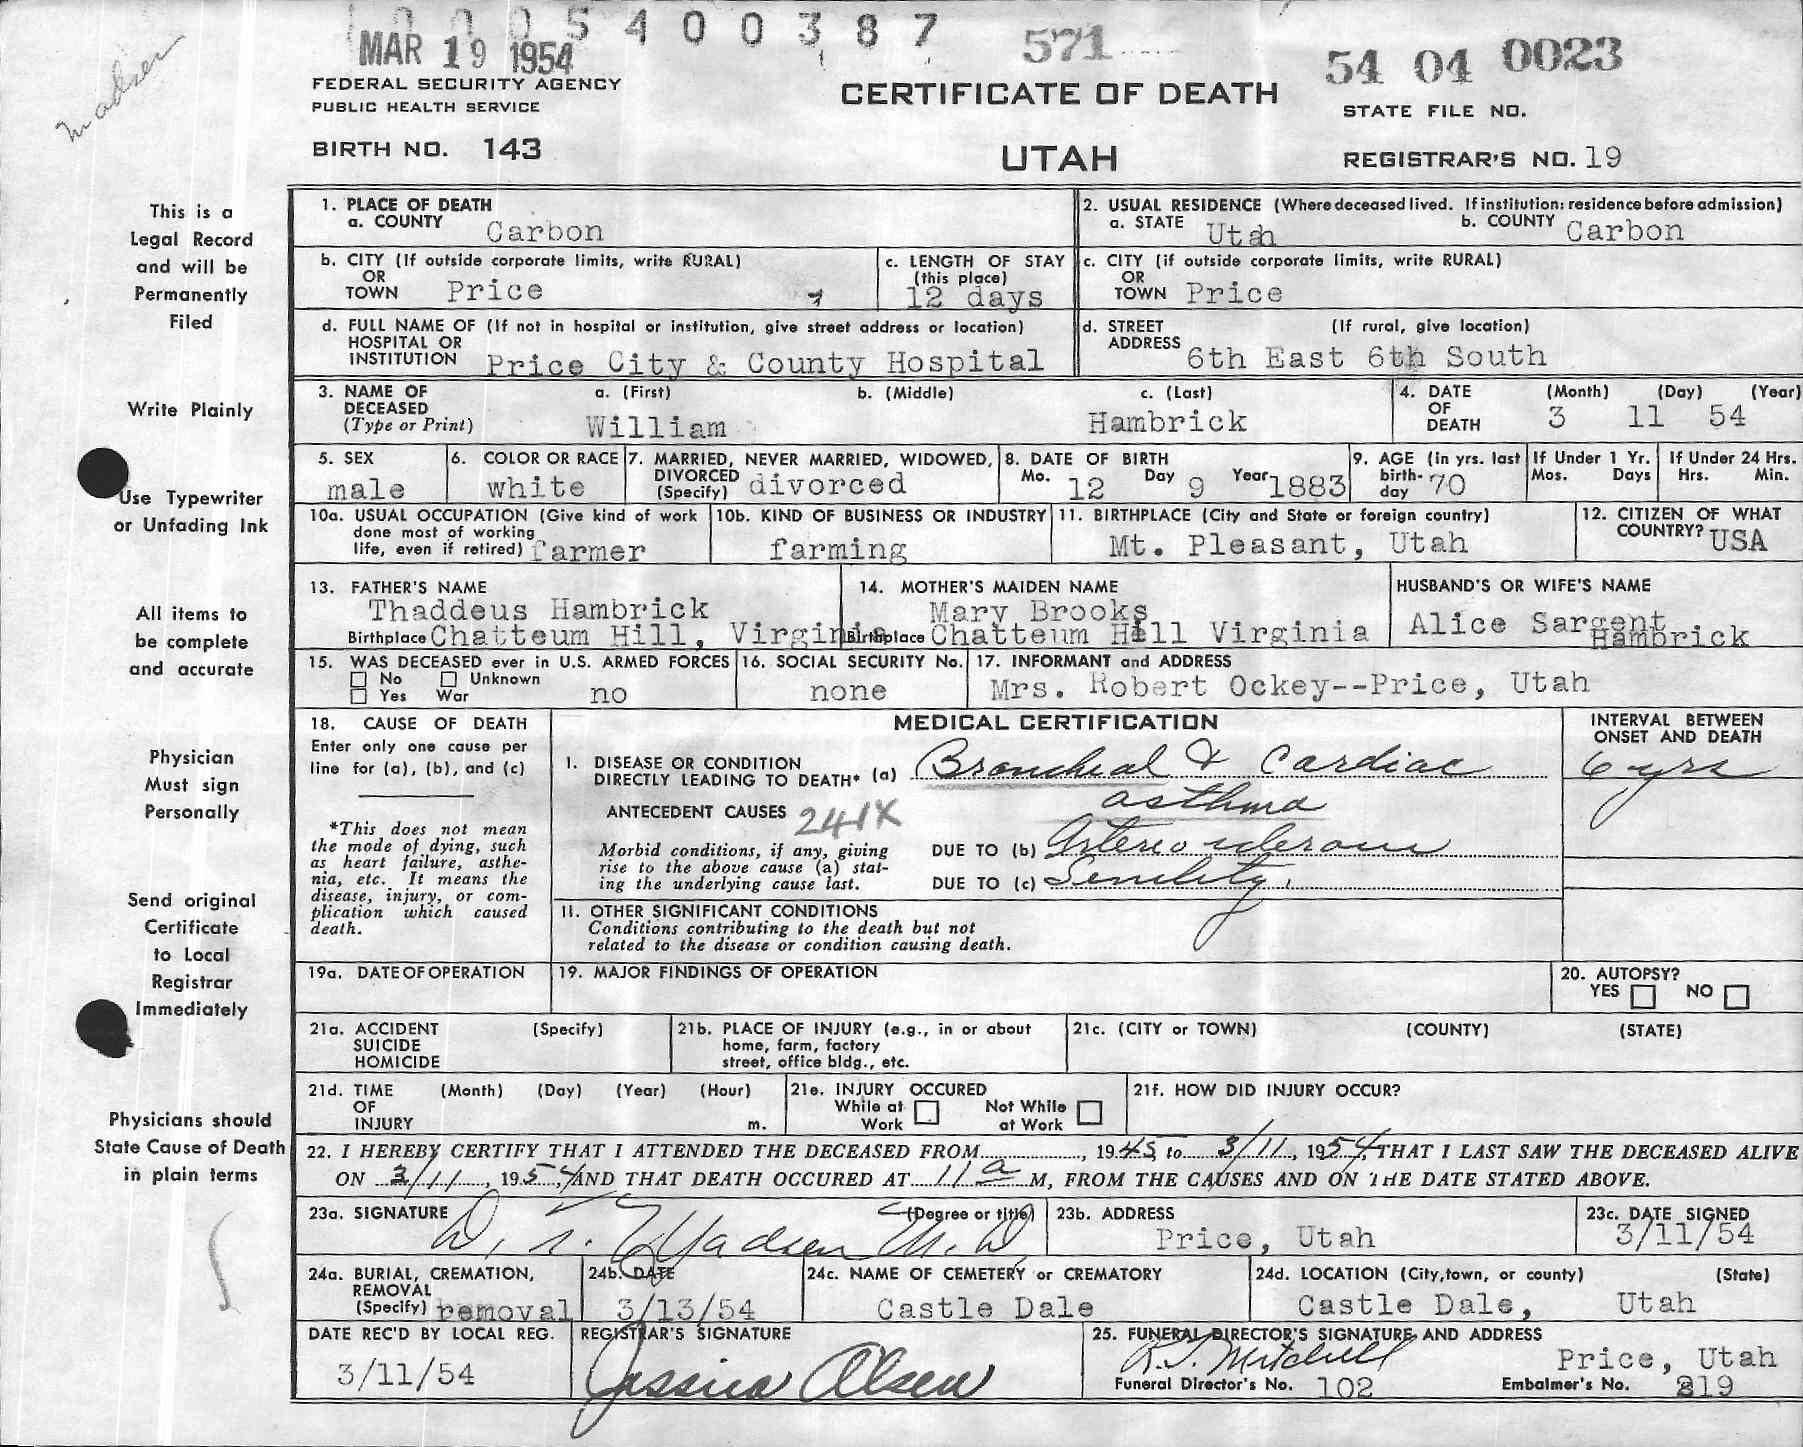 1 0 0 5 4 0 0 3 8 7
MAR 19 1954
571
54 04 0023
madsen
FEDERAL SECURITY AGENCY
PUBLIC HEALTH SERVICE
CERTIFICATE OF DEATH
STATE FILE NO.
BIRTH NO. 143
UTAH
REGISTRAR'S NO. 19
This is a
Legal Record
and will be
Permanently
Filed
Write Plainly
Use Typewriter
or Unfading Ink
All items to
be complete
and accurate
Physician
Must sign
Personally
Send original
Certificate
to Local
Registrar
Immediately
Physicians should
State Cause of Death
in plain terms
1. PLACE OF DEATH
a. COUNTY Carbon
2. USUAL RESIDENCE (Where deceased lived. If institution: residence before admission)
a. STATE Utah b. COUNTY Carbon
b. CITY (If outside corporate limits, write RURAL)
OR
TOWN Price
c. LENGTH OF STAY
(this place)
12 days
c. CITY (if outside corporate limits, write RURAL)
OR
TOWN Price
d. FULL NAME OF (If not in hospital or institution, give street address or location)
HOSPITAL OR
INSTITUTION Price City & County Hospital
d. STREET (If rural, give location)
ADDRESS 6th East 6th South
3. NAME OF a. (First) b. (Middle) c. (Last)
DECEASED
(Type or Print) William Hambrick
4. DATE (Month) (Day) (Year)
OF
DEATH 3 11 54
5. SEX
male
6. COLOR OR RACE
white
7. MARRIED, NEVER MARRIED, WIDOWED,
DIVORCED
(Specify) divorced
8. DATE OF BIRTH
Mo. 12 Day 9 Year 1883
9. AGE (in yrs. last
birth-
day 70
If Under 1 Yr.
Mos. Days
If Under 24 Hrs.
Hrs. Min.
10a. USUAL OCCUPATION (Give kind of work
done most of working
life, even if retired) farmer
10b. KIND OF BUSINESS OR INDUSTRY
farming
11. BIRTHPLACE (City and State or foreign country)
Mt. Pleasant, Utah
12. CITIZEN OF WHAT
COUNTRY? USA
13. FATHER'S NAME
Thaddeus Hambrick
Birthplace Chatteum Hill, Virginia
14. MOTHER'S MAIDEN NAME
Mary Brooks
Birthplace Chatteum Hill Virginia
HUSBAND'S OR WIFE'S NAME
Alice Sargent
Hambrick
15. WAS DECEASED ever in U.S. ARMED FORCES
No Unknown
Yes War no
16. SOCIAL SECURITY No.
none
17. INFORMANT and ADDRESS
Mrs. Robert Ockey--Price, Utah
18. CAUSE OF DEATH
Enter only one cause per
line for (a), (b), and (c)
*This does not mean
the mode of dying, such
as heart failure, asthe-
nia, etc. It means the
disease, injury, or com-
plication which caused
death.
MEDICAL CERTIFICATION
INTERVAL BETWEEN
ONSET AND DEATH
I. DISEASE OR CONDITION
DIRECTLY LEADING TO DEATH* (a) Broncheal & Cardiac 6 yrs
asthma
ANTECEDENT CAUSES 241X
Morbid conditions, if any, giving
rise to the above cause (a) stat-
ing the underlying cause last.
DUE TO (b)
DUE TO (c) Senility
II. OTHER SIGNIFICANT CONDITIONS
Conditions contributing to the death but not
related to the disease or condition causing death.
19a. DATE OF OPERATION
19. MAJOR FINDINGS OF OPERATION
20. AUTOPSY?
YES NO
21a. ACCIDENT (Specify)
SUICIDE
HOMICIDE
21b. PLACE OF INJURY (e.g., in or about
home, farm, factory
street, office bldg., etc.
21c. (CITY or TOWN) (COUNTY) (STATE)
21d. TIME (Month) (Day) (Year) (Hour)
OF
INJURY m.
21e. INJURY OCCURED
While at Work
Not While at Work
21f. HOW DID INJURY OCCUR?
22. I HEREBY CERTIFY THAT I ATTENDED THE DECEASED FROM , 1945, to 3/11, 1954, THAT I LAST SAW THE DECEASED ALIVE
ON 3/11, 1954, AND THAT DEATH OCCURED AT 11 a M, FROM THE CAUSES AND ON THE DATE STATED ABOVE.
23a. SIGNATURE (Degree or title)
Madsen M.D.
23b. ADDRESS
Price, Utah
23c. DATE SIGNED
3/11/54
24a. BURIAL, CREMATION,
REMOVAL
(Specify) removal
24b. DATE
3/13/54
24c. NAME OF CEMETERY or CREMATORY
Castle Dale
24d. LOCATION (City, town, or county) (State)
Castle Dale, Utah
DATE REC'D BY LOCAL REG.
3/11/54
REGISTRAR'S SIGNATURE
Jessica Olsen
25. FUNERAL DIRECTOR'S SIGNATURE AND ADDRESS
Mitchell Price, Utah
Funeral Director's No. 102 Embalmer's No. 219